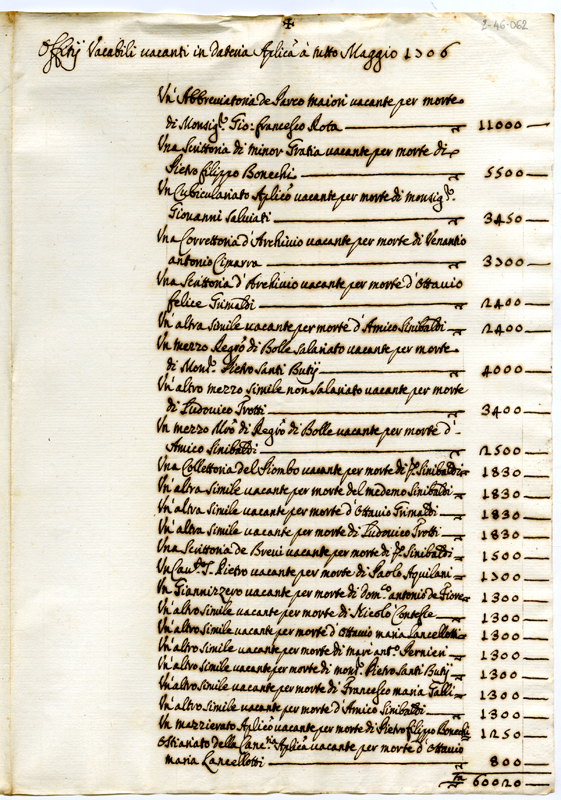 2-46-062
Offitij Vacabili vacanti in Dataria Aplicã à tutto Maggio 1706
Un' Abbreviatoria de Parco maiori vacante per morte
di Monsig.r Gio: Francesco Rota 11000
Una Scrittoria di minor Gratia vacante per morte di
Pietro Filippo Bonechi 5500
Un Cubiculariato Aplico vacante per morte di monsig.r
Giovanni Salviati 3450
Una Correttoria d'Archivio vacante per morte di Venantio
antonio Cimarra 3300
Una Scrittoria d'Archivio vacante per morte d'Ottavio
felice Grimaldi 2400
Un' altra simile vacante per morte d'Amico Sinibaldi 2400
Un mezzo Regrõ di Bolle Salariato vacante per morte
di Mons.r Pietro Santi Butij 4000
Un' altro mezzo simile non Salariato vacante per morte
di Ludovico Trotti 3400
Un mezzo Mrõ di Regrõ di Bolle vacante per morte d'
Amico Sinibaldi 2500
Una Collettoria del Piombo vacante per morte di Sinibaldi 1830
Un' altra simile vacante per morte del medemo Sinibaldi 1830
Un' altra simile vacante per morte d'Ottavio Grimaldi 1830
Un' altra simile vacante per morte di Ludovico Trotti 1830
Una Scrittoria de Brevi vacante per morte di Sinibaldi 1500
Un Cau.to S. Pietro vacante per morte di Paolo Aquilani 1300
Un Giannizzero vacante per morte di Dom.co antonio de Fiore 1300
Un' altro simile vacante per morte di Nicolo Contesse 1300
Un' altro simile vacante per morte d'Ottavio maria Lancellotti 1300
Un' altro simile vacante per morte di mari ant.o Pernieri 1300
Un' altro simile vacante per morte di mons.r Pietro Santi Butij 1300
Un' altro simile vacante per morte di Francesco maria Galli 1300
Un' altro simile vacante per morte d'Amico Sinibaldi 1300
Un mazzierato Aplico vacante per morte di Pietro Filippo Bonechi 1250
Ostiariato della Canc.ria Aplica vacante per morte d'Ottavio
maria Lancellotti 800
60020